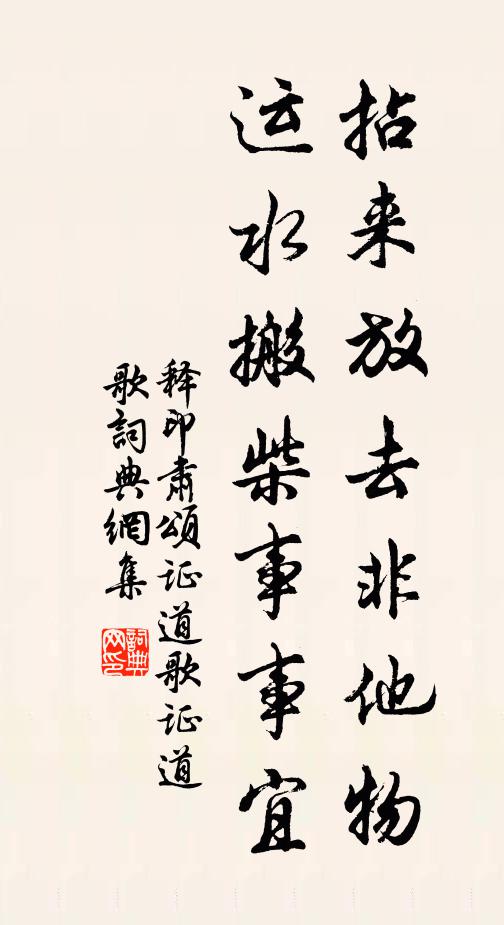 拈来放去非他物
运水搬柴事事宜
释印肃颂证道歌证道
歌詞典網集
詞典网印